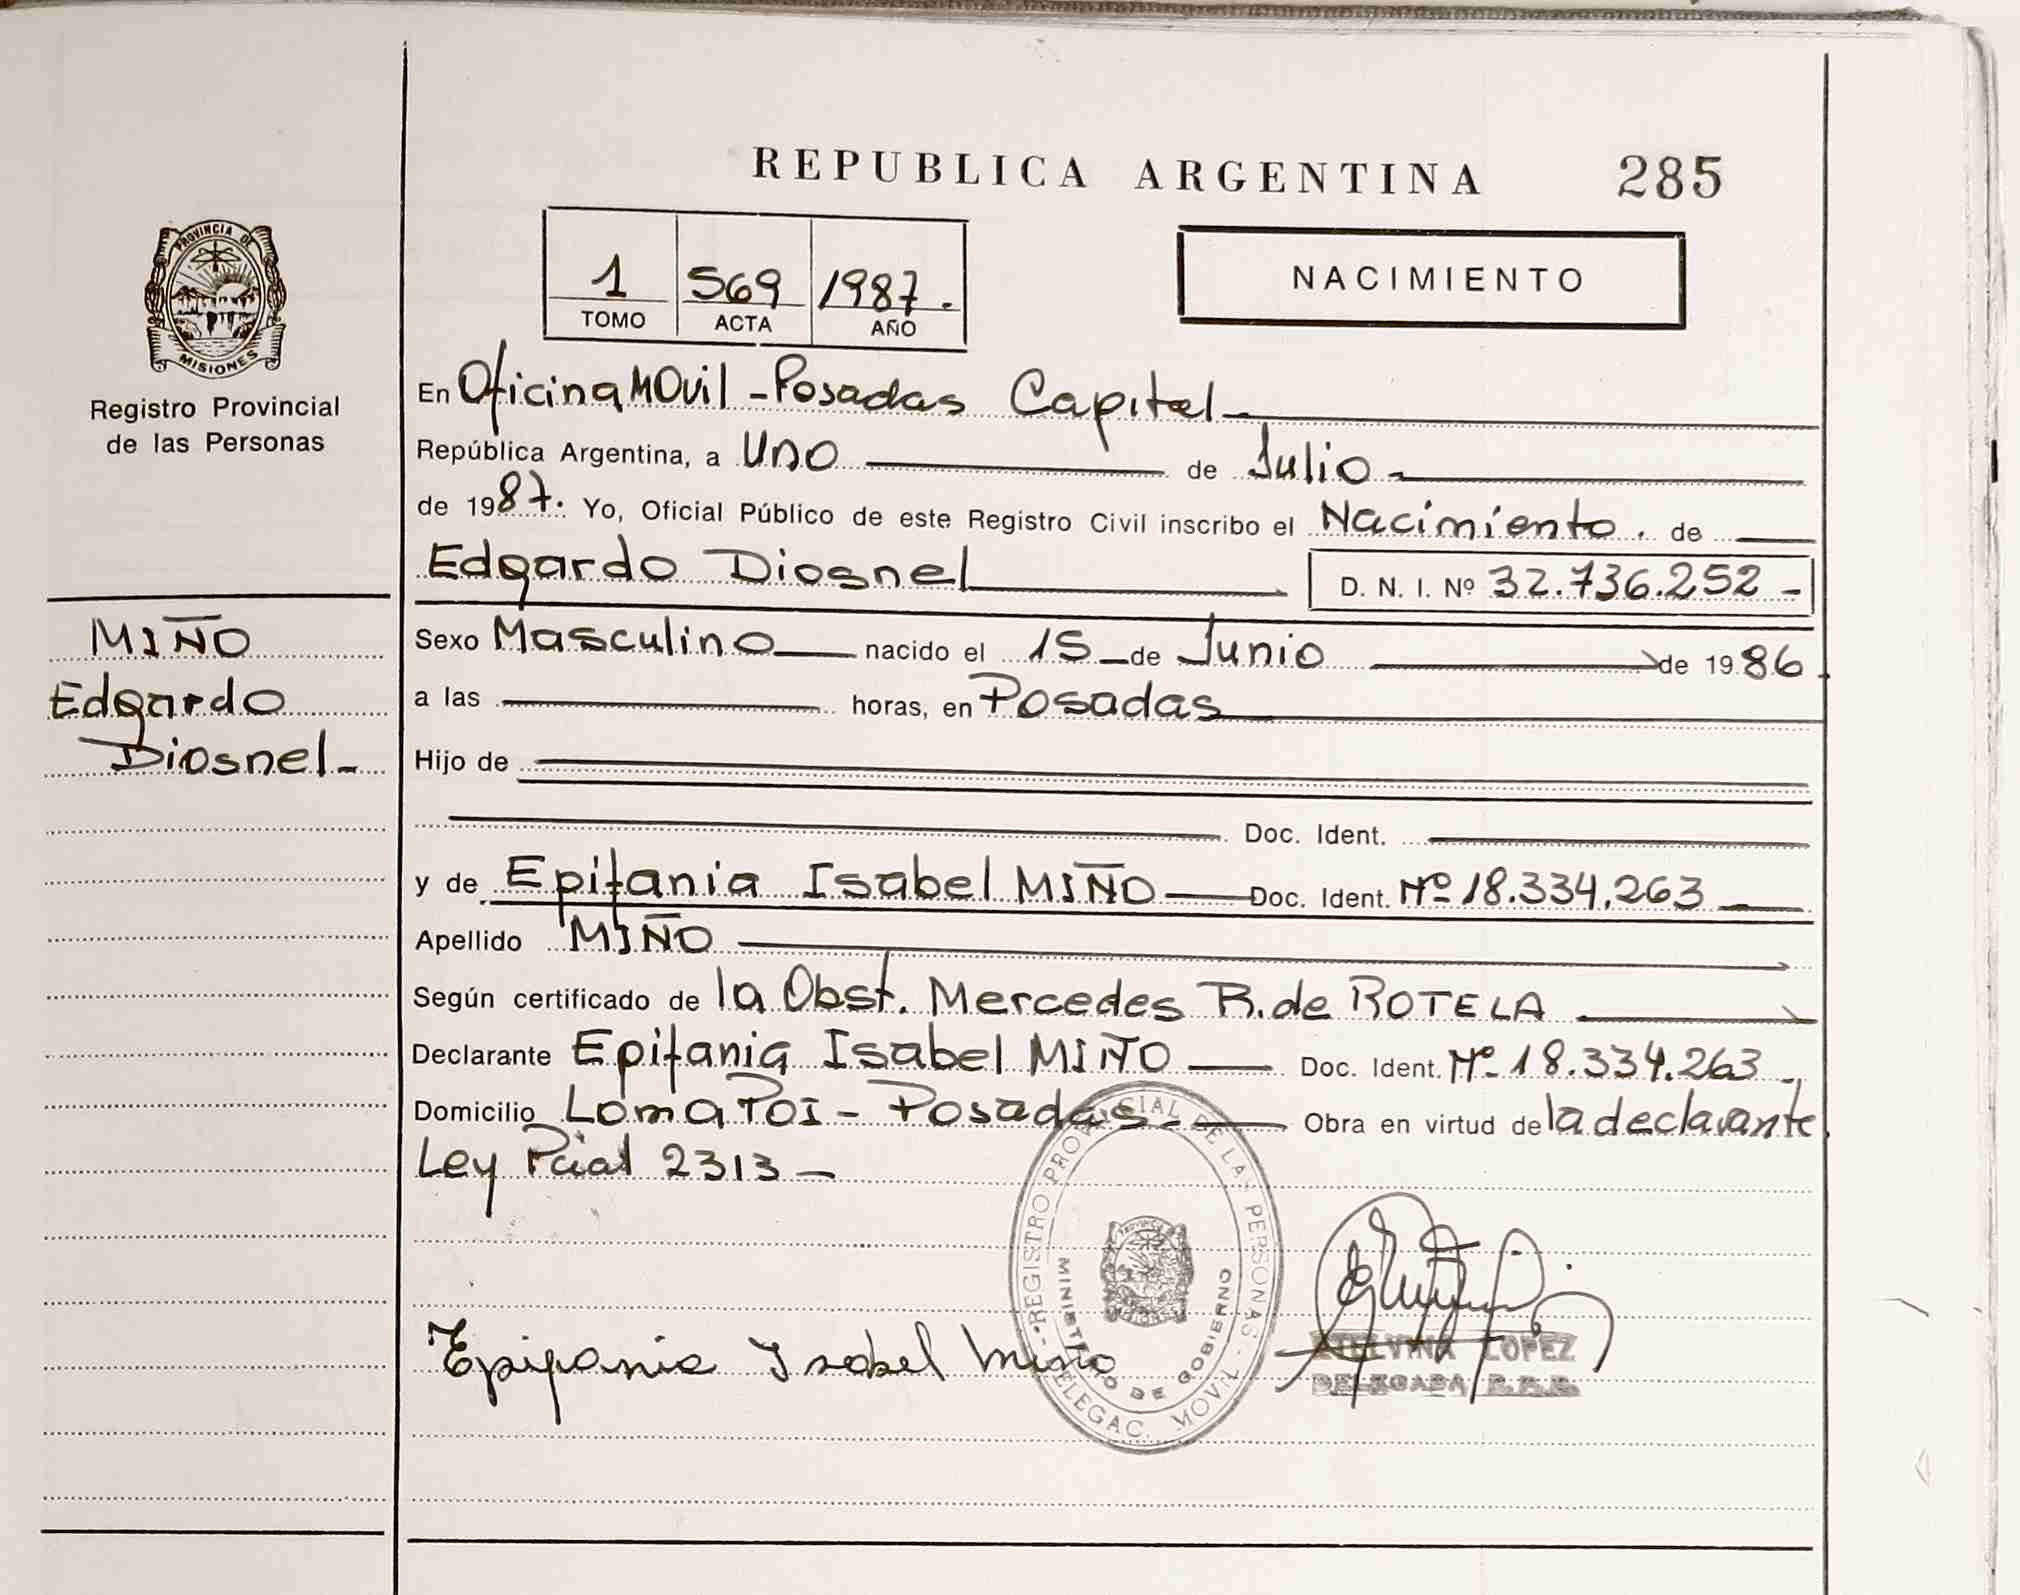 REPUBLICA ARGENTINA 285
PROVINCIA DE
MISIONES
Registro Provincial
de las Personas
1 569 1987.-
TOMO ACTA AÑO
NACIMIENTO
En Oficina MOvil - Posadas Capital -
República Argentina, a Uno de Julio -
de 1987. Yo, Oficial Público de este Registro Civil inscribo el Nacimiento. de
Edgardo Diosnel D. N. I. Nº 32.736.252 -
MIÑO
Edgardo
Diosnel -
Sexo Masculino nacido el 15 de Junio de 1986
a las horas, en Posadas
Hijo de
Doc. Ident.
y de Epifania Isabel MIÑO Doc. Ident. Nº 18.334.263
Apellido MIÑO
Según certificado de la Obst. Mercedes R. de ROTELA
Declarante Epifania Isabel MIÑO Doc. Ident. Nº 18.334.263 -
Domicilio Loma Poi - Posadas - Obra en virtud de la declarante
Ley Pcial 2313 -
REGISTRO PROVINCIAL DE LAS PERSONAS - DELEGAC. MOVIL -
MINISTERIO DE GOBIERNO
Epifania Isabel Miño
ETELVINA LOPEZ
DELEGADA R.P.P.